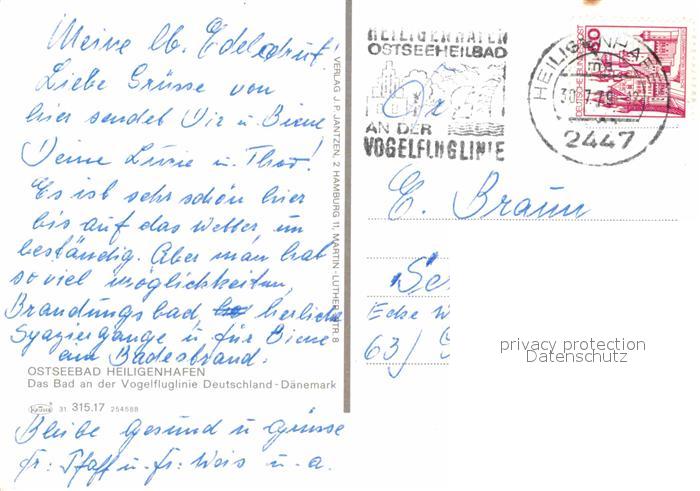 Meine lb. Edeldrut!
Liebe Grüsse von
hier sendet Dir u. Biene
Deine Luzie u.
Es ist sehr schön hier
bis auf das Wetter, un
beständig. Aber man hat
so viel möglichkeiten,
Brandungsbad, herliche
Spaziergange u für Biene
ein Badestrand.
OSTSEEBAD HEILIGENHAFEN
Das Bad an der Vogelfluglinie Deutschland - Dänemark
Krüger 31 315.17 254588
Bleibe gesund u grüsse
Fr. Pfaff u. Fr. Weis u. a.
VERLAG J. P. JANTZEN, 2 HAMBURG 11, MARTIN-LUTHER-STR. 8
HEILIGENHAFEN
OSTSEEHEILBAD
AN DER
VOGELFLUGLINIE
HEILIGENHAFEN
30.7.79
2447
50
DEUTSCHE BUNDESPOST
E. Braun
Ecke W
63)
privacy protection
Datenschutz